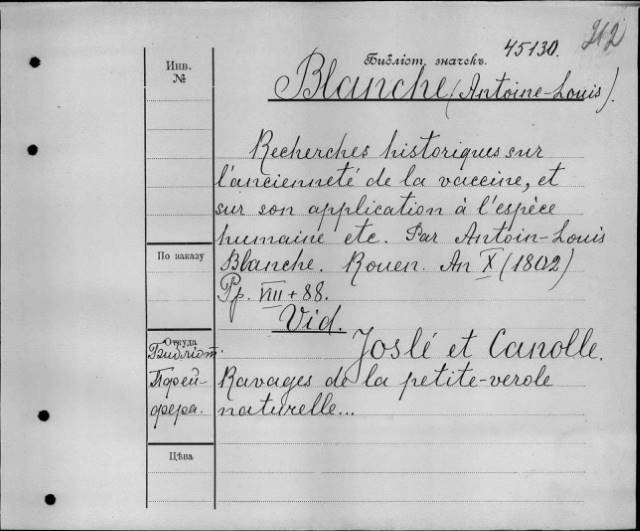 45130. 212
Инв. №
Библіот. значекъ.
Blanche (Antoine-Louis).
Recherches historiques sur
l'ancienneté de la vaccine, et
sur son application à l'espèce
humaine etc. Par Antoin-Louis
По заказу
Blanche. Rouen. An X (1802)
Pp. VIII + 88.
Vid.
Откуда
Библіот.
Порей-
фера.
Joslé et Canolle.
Ravages de la petite-verole
naturelle...
Цѣна